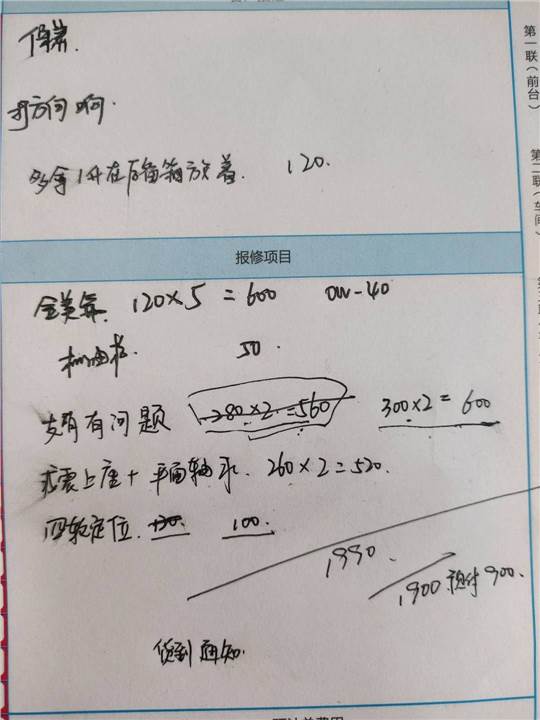 保养.
打方向响.
多拿1升在后备箱放着. 120.
报修项目
金美孚. 120×5=600 0W-40
机油格. 50.
支臂有问题 280×2=560 300×2=600
减震上座+平面轴承. 260×2=520.
四轮定位. 130. 100.
1990.
1900. 预付900.
货到通知.
第一联(前台)
第二联(车间)